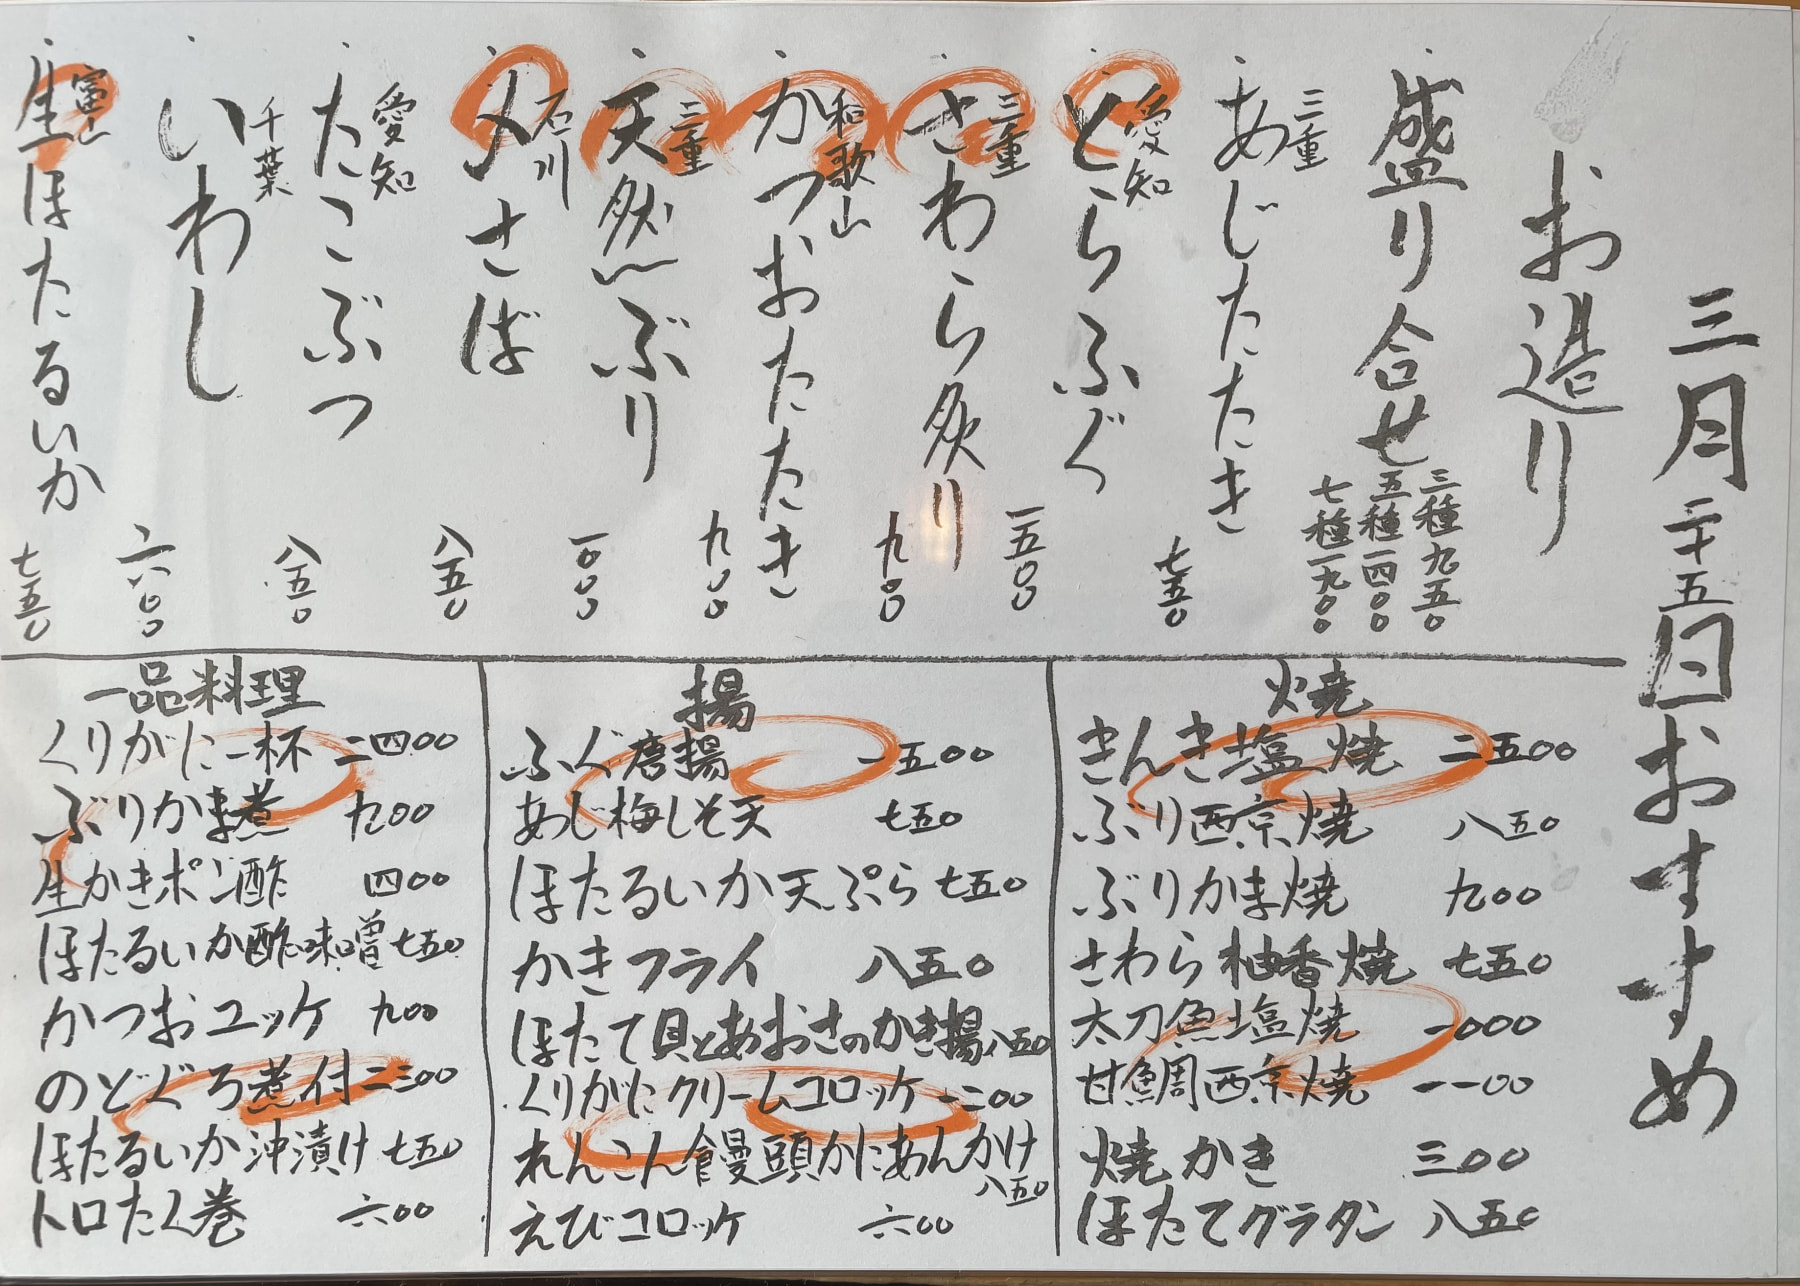 三月二十五日おすすめ
お造り
盛り合せ
三種九五〇
五種一四〇〇
七種一九〇〇
三重
あじたたき
七五〇
愛知
とらふぐ
一五〇〇
三重
さわら炙り
九〇〇
和歌山
かつおたたき
九〇〇
三重
天然ぶり
一〇〇〇
石川
〆さば
八五〇
愛知
たこぶつ
八五〇
千葉
いわし
六〇〇
富山
生ほたるいか
七五〇
焼
きんき塩焼 二五〇〇
ぶり西京焼 八五〇
ぶりかま焼 九〇〇
さわら柚香焼 七五〇
太刀魚塩焼 一〇〇〇
甘鯛西京焼 一一〇〇
焼かき 三〇〇
ほたてグラタン 八五〇
揚
ふぐ唐揚 一五〇〇
あじ梅しそ天 七五〇
ほたるいか天ぷら 七五〇
かきフライ 八五〇
ほたて貝とあおさのかき揚 八五〇
くりがにクリームコロッケ 一二〇〇
れんこん饅頭かにあんかけ
八五〇
えびコロッケ 六〇〇
一品料理
くりがに一杯 二四〇〇
ぶりかま煮 九〇〇
生かきポン酢 四〇〇
ほたるいか酢味噌 七五〇
かつおユッケ 九〇〇
のどぐろ煮付 二三〇〇
ほたるいか沖漬け 七五〇
トロたく巻 六〇〇